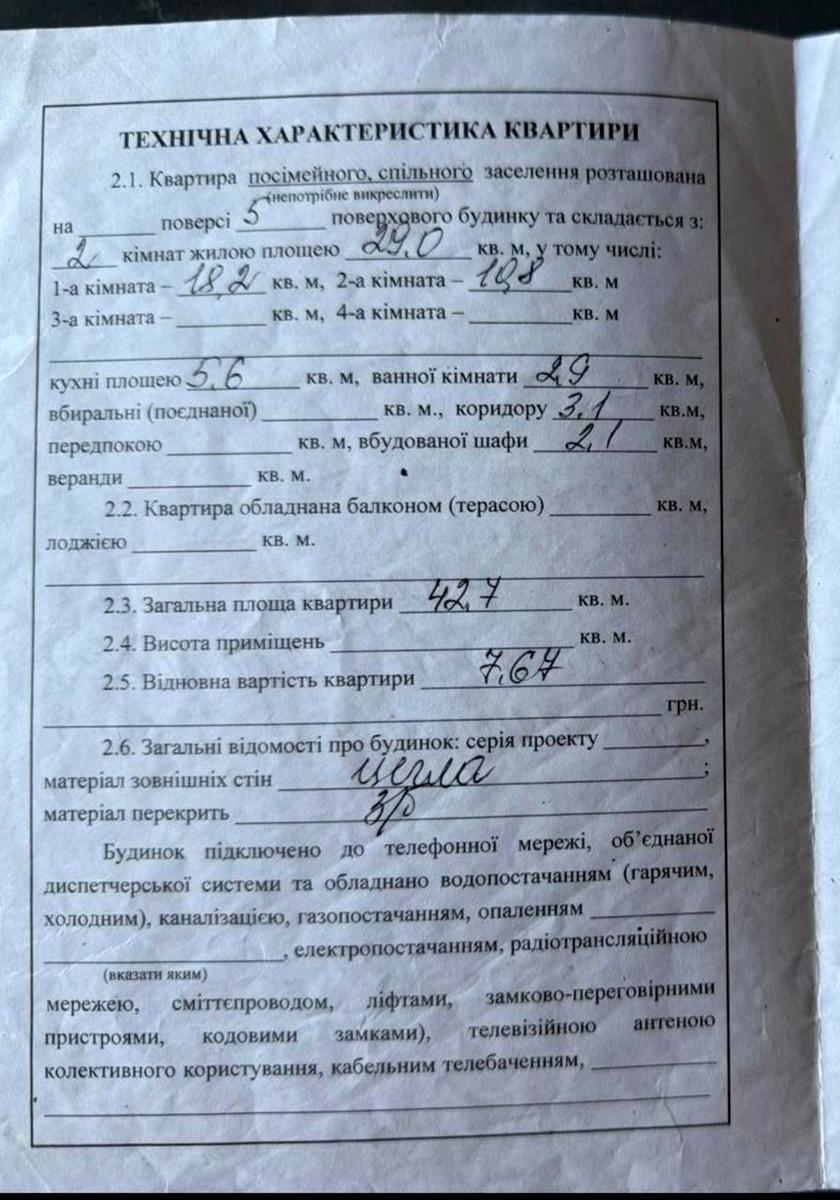 ТЕХНІЧНА ХАРАКТЕРИСТИКА КВАРТИРИ
2.1. Квартира посімейного, спільного заселення розташована
(непотрібне викреслити)
на ______ поверсі 5 поверхового будинку та складається з:
2 кімнат жилою площею 29.0 кв. м, у тому числі:
1-а кімната – 18,2 кв. м, 2-а кімната – 10,8 кв. м
3-а кімната – ______ кв. м, 4-а кімната – ______ кв. м
кухні площею 5,6 кв. м, ванної кімнати 2,9 кв. м,
вбиральні (поєднаної) ______ кв. м., коридору 3,1 кв.м,
передпокою ______ кв. м, вбудованої шафи 2,1 кв.м,
веранди ______ кв. м.
2.2. Квартира обладнана балконом (терасою) ______ кв. м,
лоджією ______ кв. м.
2.3. Загальна площа квартири 42,7 кв. м.
2.4. Висота приміщень ______ кв. м.
2.5. Відновна вартість квартири 7,67
______ грн.
2.6. Загальні відомості про будинок: серія проекту ______,
матеріал зовнішніх стін цегла ;
матеріал перекрить з/б
Будинок підключено до телефонної мережі, об’єднаної
диспетчерської системи та обладнано водопостачанням (гарячим,
холодним), каналізацією, газопостачанням, опаленням ______
______, електропостачанням, радіотрансляційною
(вказати яким)
мережею, сміттєпроводом, ліфтами, замково-переговірними
пристроями, кодовими замками), телевізійною антеною
колективного користування, кабельним телебаченням, ______